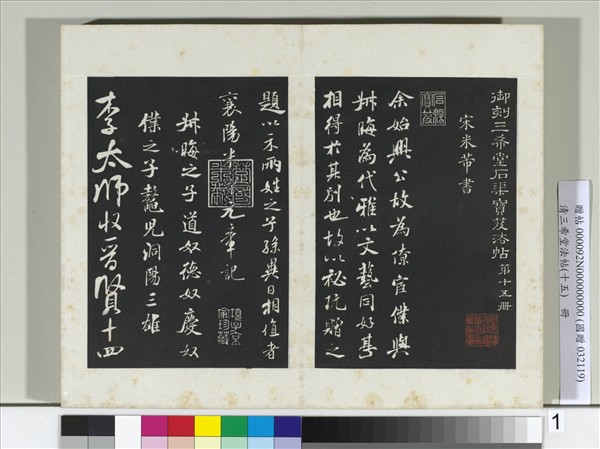 御刻三希堂石渠寶笈法帖第十五冊
宋米芾書
石渠寶笈
余始興公故為僚宦僕與
叔晦為代雅以文藝同好甚
相得於其別也故以秘玩贈之
題以不兩姓之子孫異日相值者
襄陽米黻元章記
叔晦之子道奴德奴慶奴
僕之子鼇兒洞陽三雄
項子京家珍藏
李太師收晉賢十四
贈帖 000092N000000000 (國贈 032119)
清三希堂法帖(十五) 冊
1